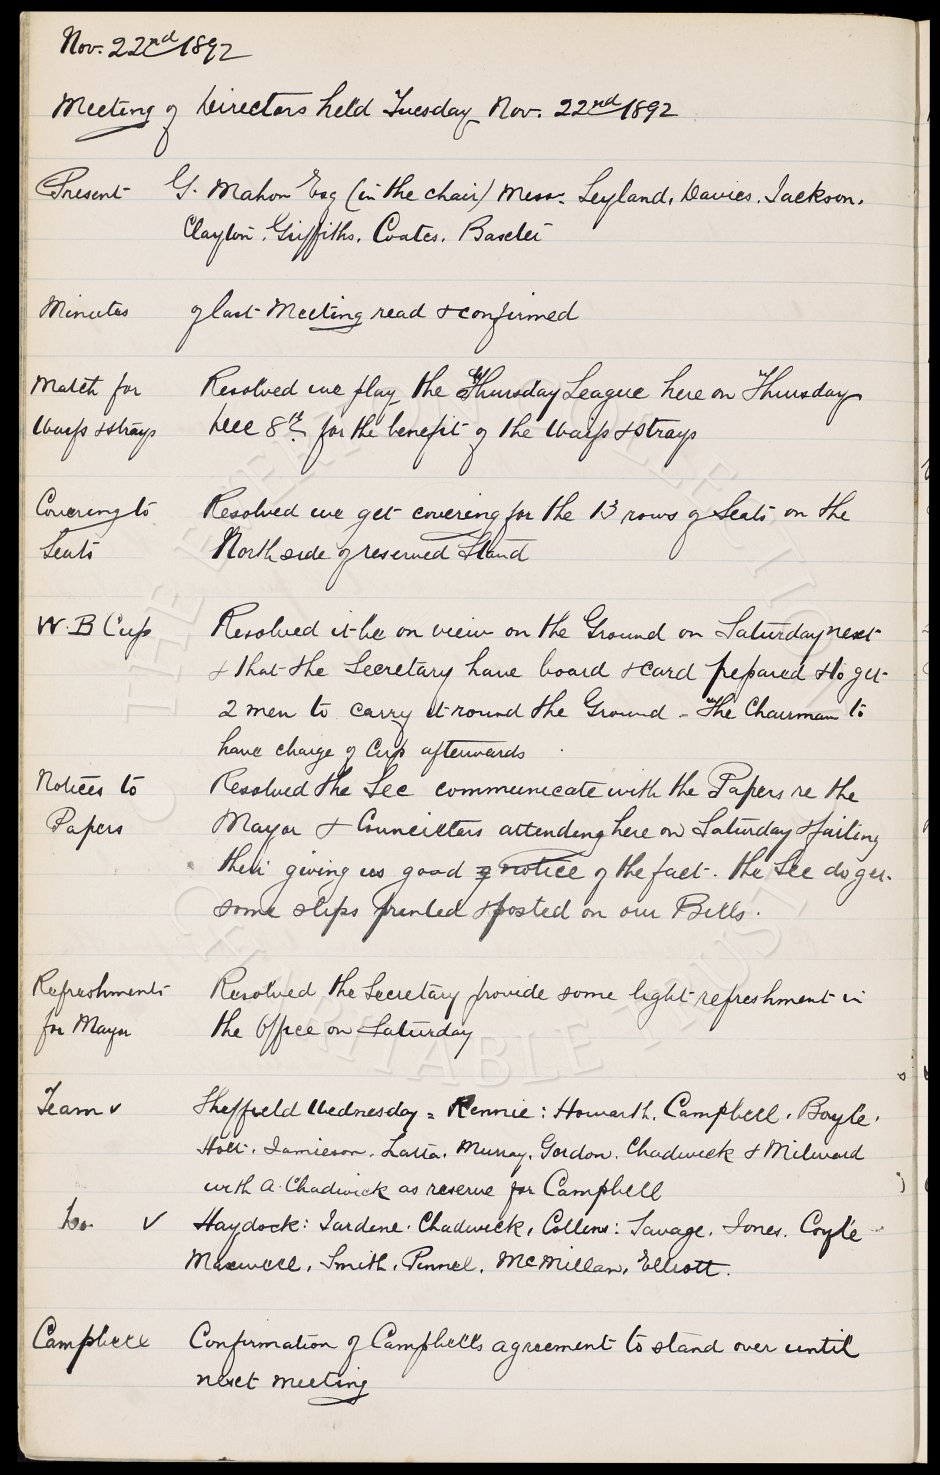 Nov. 22nd 1892
Meeting of Directors held Tuesday Nov. 22nd 1892
Present G. Mahon Esq (in the chair) Messrs. Leyland, Davies, Jackson,
Clayton, Griffiths, Coates, Baxter
Minutes of last Meeting read & confirmed
Match for Resolved we play the Thursday League here on Thursday
Waifs & Strays Dec 8th for the benefit of the Waifs & Strays
Covering to Resolved we get covering for the 13 rows of Seats on the
Seats North side of reserved Stand
W. B Cup Resolved it be on view on the Ground on Saturday next
& that the Secretary have board & card prepared & to get
2 men to carry it round the Ground - The Chairman to
have charge of Cup afterwards
Notices to Resolved the Sec communicate with the Papers re the
Papers Mayor & Councillors attending here on Saturday & failing
their giving us good notice of the fact. the Sec do get
some slips printed & posted on our Bills.
Refreshments Resolved the Secretary provide some light refreshment in
for Mayor the Office on Saturday
Team v Sheffield Wednesday = Rennie: Howarth, Campbell, Boyle,
Holt, Jamieson, Latta, Murray, Gordon, Chadwick & Milward
with A. Chadwick as reserve for Campbell
Do. v Haydock: Jardine, Chadwick, Collins: Savage, Jones, Coyle
Maxwell, Smith, Pinnel, McMillan, Elliott.
Campbell Confirmation of Campbells agreement to stand over until
next meeting
THE EVERTON COLLECTION
CHARITABLE TRUST